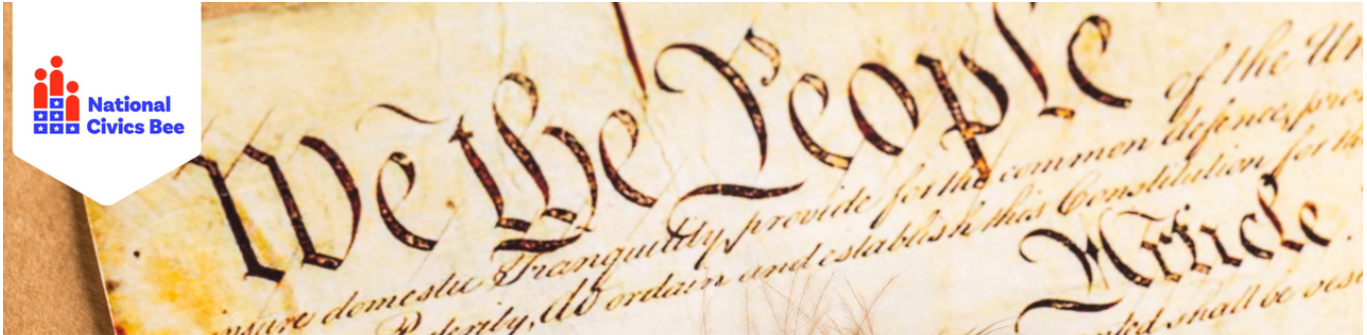 National
Civics Bee
We the People
of the Un
insure domestic Tranquility, provide for the common defence, pro
Posterity, do ordain and establish this Constitution for the
Article.
shall be ves